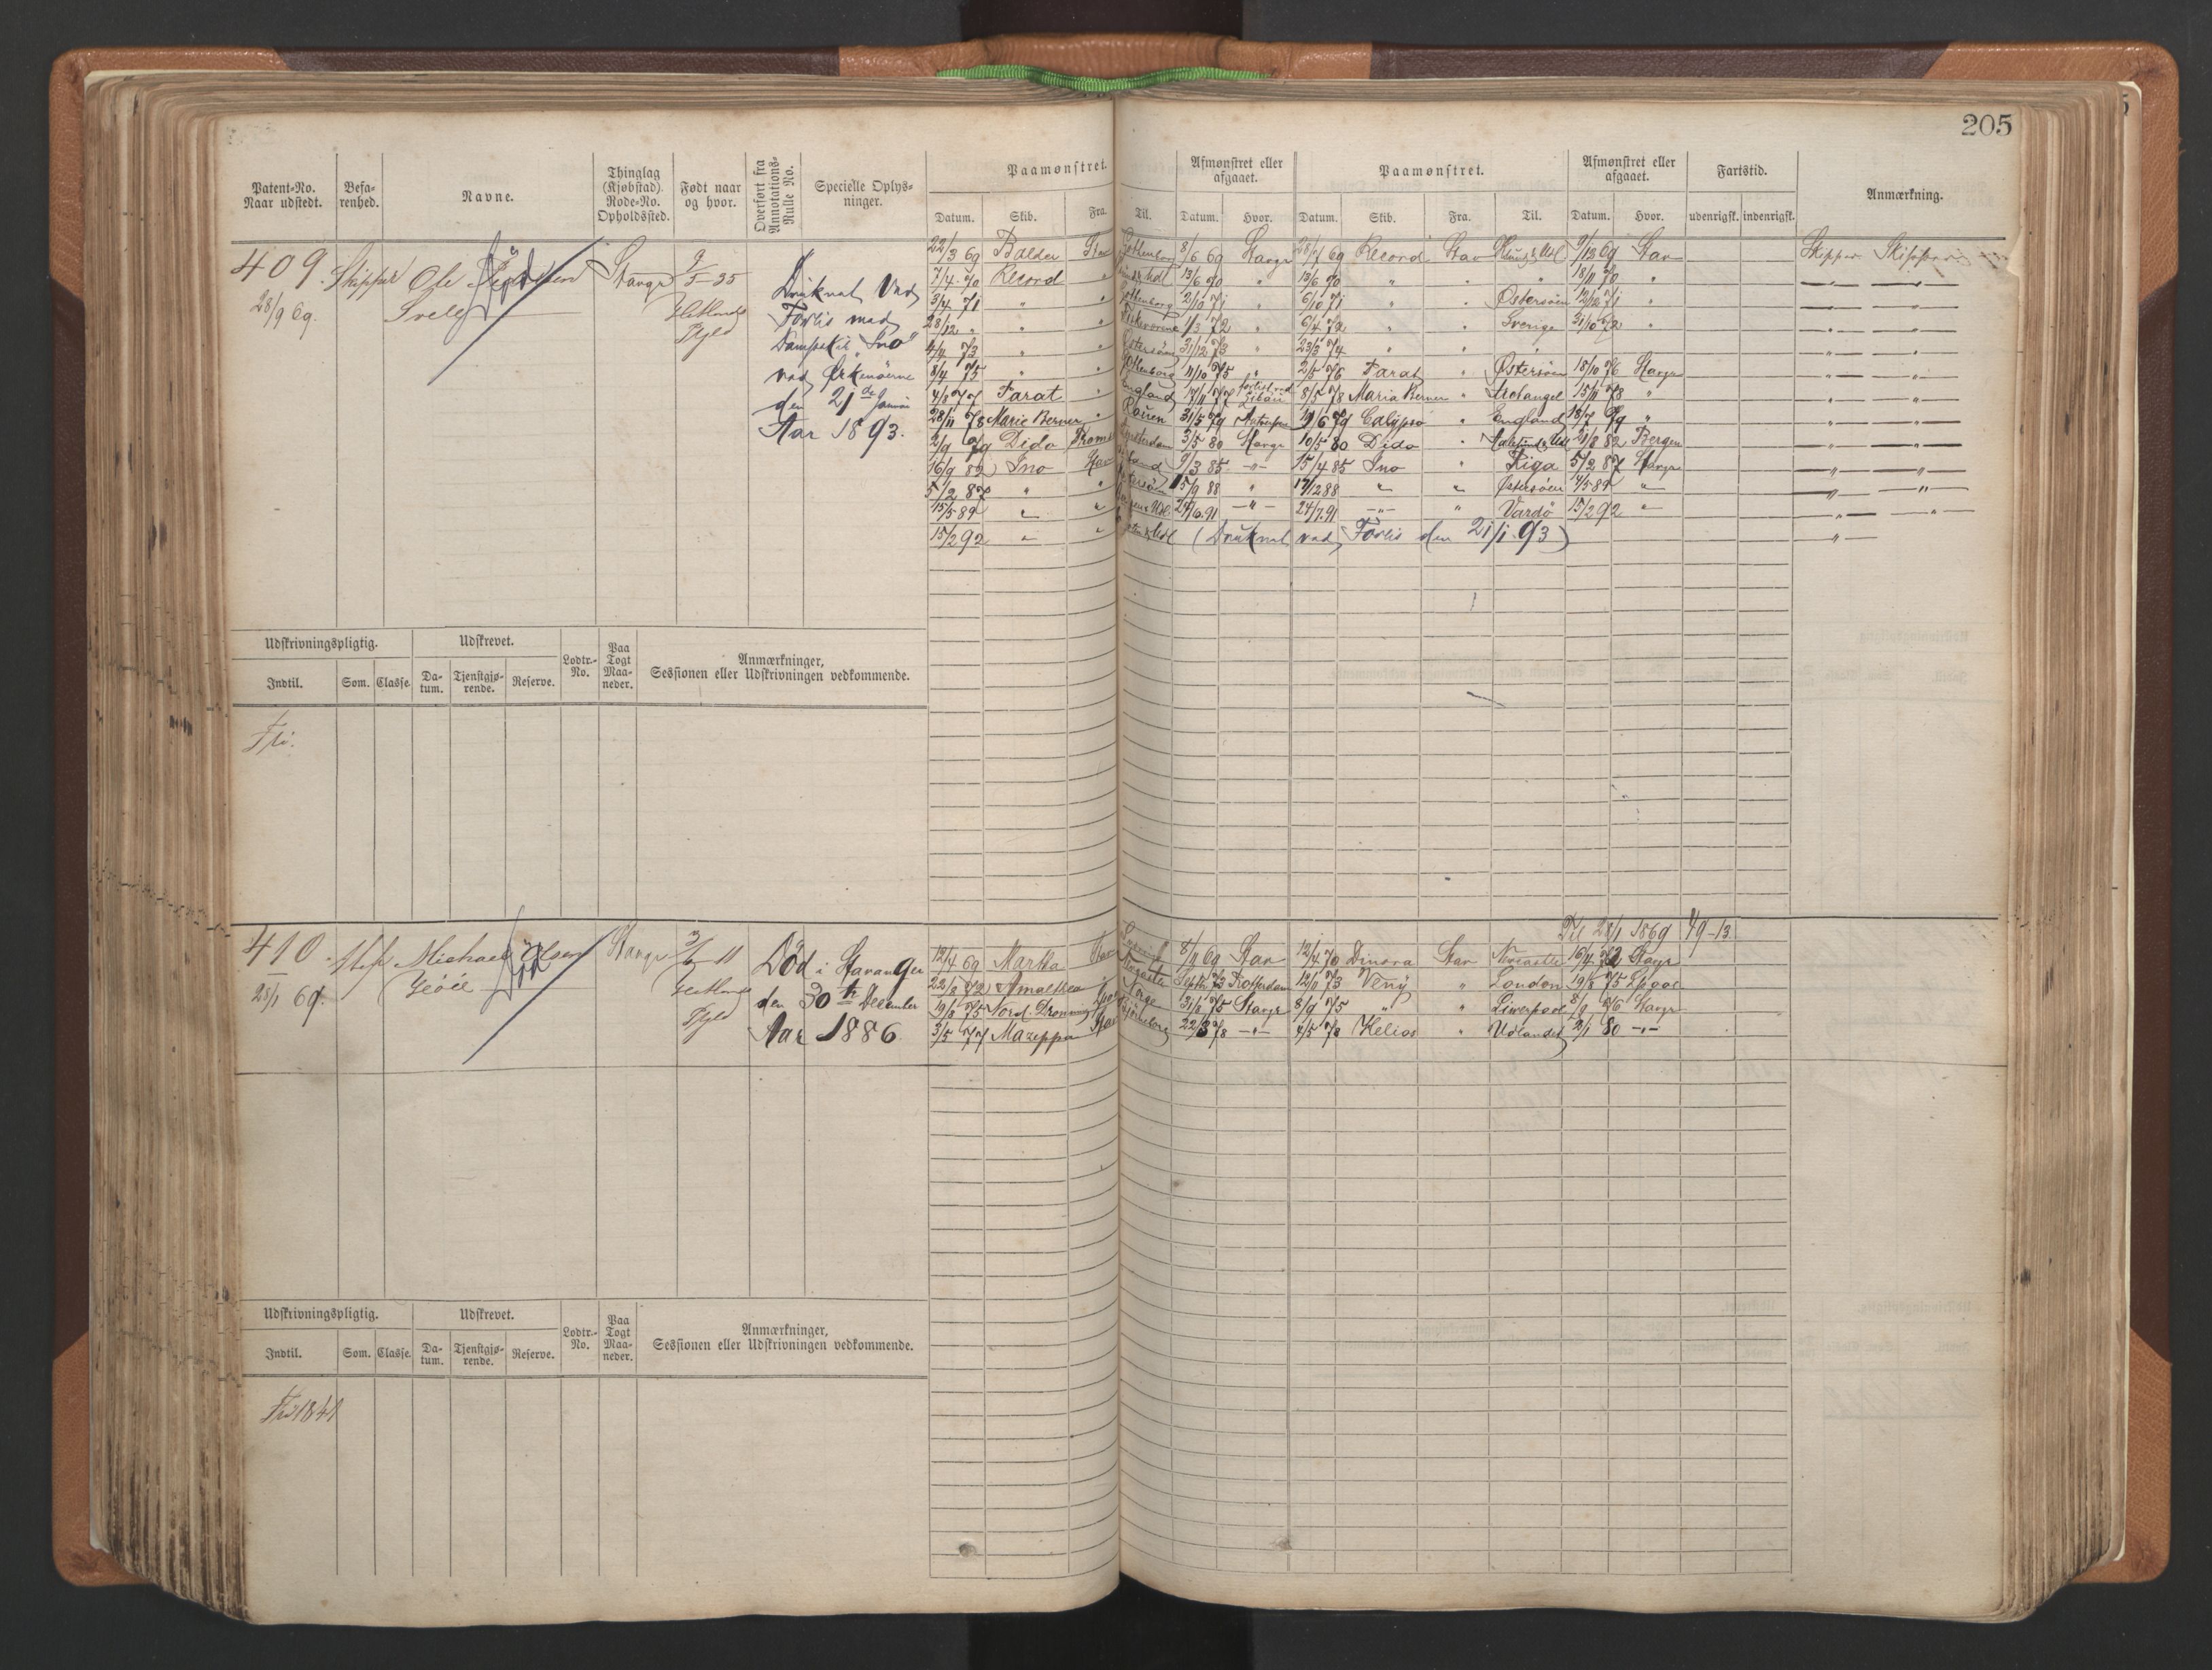 205
Patent-No.
Naar udstedt.
Befa-
renhed.
Navne.
Thinglag
(Kjøbstad).
Rode-No.
Opholdssted.
Født naar
og hvor.
Overført fra
Annotations-
Rulle No.
Specielle Oplys-
ninger.
Paamønstret.
Datum. Skib. Fra.
Til.
Afmønstret eller
afgaaet.
Datum. Hvor.
Paamønstret.
Datum. Skib. Fra. Til.
Afmønstret eller
afgaaet.
Datum. Hvor.
Fartstid.
udenrigsk. indenrigsk.
Anmærkning.
409. Skipper Ole
28/9 69.
Stavgr
Hetlands
Pgjld
Død
Druknet ved
Forlis med
Dampskib "Ino"
ved Orkenöerne
den 21de Januar
Aar 1893.
22/3 69 Balder Stav 8/6 69 Stavgr 28/7 69 Record Stav 9/12 69 Stav Skipper Skipper
7/4 70 Record " 13/6 70 " 13/6 70 " " " 18/11 70 "
3/4 71 " " Gottenborg 2/10 71 " 6/10 71 " " Østersøen 12/12 71 "
28/12 " " " 1/3 72 " 6/4 72 " " Sverige 31/10 72 "
4/4 73 " " Østersøen 31/12 73 " 23/3 74 " " "
8/4 75 " " Gottenborg 11/10 75 " 2/5 76 Farat " Østersøen 18/10 76 Stavgr
4/8 77 Farat " England 17/11 77 forlist ved Libau 8/5 78 Maria Berner " Archangel 15/11 78 "
28/11 78 Marie Berner " Rouen 31/5 79 Antwerpen 19/6 79 Calypso " England 18/7 79 "
2/9 79 Dido Tromsø Amsterdam 3/5 80 Stavgr 10/5 80 Dido " Aalesund & Udl 21/8 82 Bergen
16/9 82 Ino Stav 9/3 85 -"- 15/4 85 Ino " Riga 5/2 87 Stavgr
5/2 87 " " Østersøen 15/9 88 " 17/2 88 " " Østersøen 4/5 89 "
15/5 89 " " 24/6 91 -"- 24/7 91 -"- " Vardö 15/2 92 "
15/2 92 " " (Druknet ved Forlis den 21/1 93)
Udskrivningspligtig.
Udskrevet.
Lodtr.-
No.
Paa
Togt
Maa-
neder.
Anmærkninger,
Sessionen eller Udskrivningen vedkommende.
Indtil. Som. Classe. Da-
tum. Tjenstgjø-
rende. Reserve.
Fri.
Til 28/1 1869 49-13.
410. Michael Olsen
28/1 69.
Stavgr
Hetlands
Pgjld
Død
Død i Stavanger
den 30te December
Aar 1886.
12/4 69 Martha Stav 8/9 69 Stav 12/4 70 Dinora Stav Newcastle 16/4 72 Stavgr
22/8 72 Amalthea " Septbr 73 Rotterdam 12/11 73 Veny " London 19/8 75 Lpool
19/8 75 Nord. Dronning Lpool Norge 31/8 75 Stavgr 8/9 75 " " Liverpool 8/9 76 Stavgr
3/5 77 Mazeppa Stav 22/3 78 -"- 4/5 78 Helios " Udlandet 2/1 80 -"-
Udskrivningspligtig.
Udskrevet.
Lodtr.-
No.
Paa
Togt
Maa-
neder.
Anmærkninger,
Sessionen eller Udskrivningen vedkommende.
Indtil. Som. Classe. Da-
tum. Tjenstgjø-
rende. Reserve.
Fri 1841